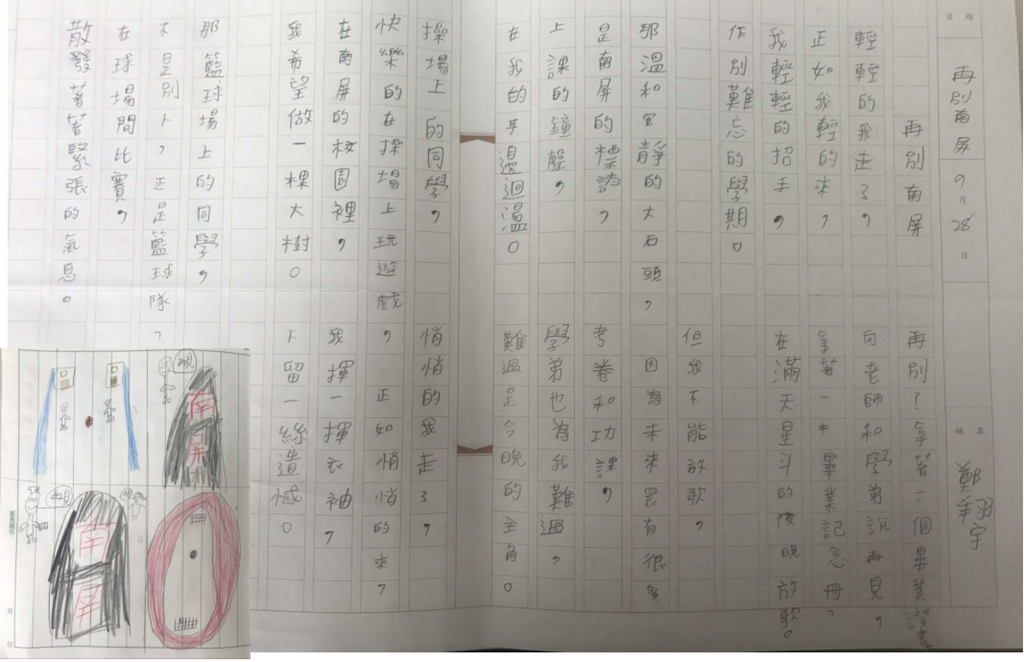 日期
再別南屏
9月28日
姓名
鄭翔宇
再別南屏
輕輕的我走了，
正如我輕的來，
我輕輕的招手，
作別難忘的學期。
那溫和平靜的大石頭，
是南屏的標誌，
上課的鐘聲，
在我的耳邊迴溫。
操場上的同學，
快樂的在操場上玩遊戲，
在南屏的校園裡，
我希望做一棵大樹。
那籃球場上的同學，
不是別卜，正是籃球隊，
在球場間比賽，
散發著著緊張的氣息。
再別？拿著一個畢業證書
向老師和學弟說再見，
拿著一本畢業記念冊，
在滿天星斗的後晚放歌。
但我不能放歌，
因為未來還有很多
考卷和功課，
學弟也為我難過，
難過是今晚的主角。
悄悄的我走了，
正如悄悄的來，
我揮一揮衣袖，
不留一絲遺憾。
南屏
再見
南屏
再見
月
日